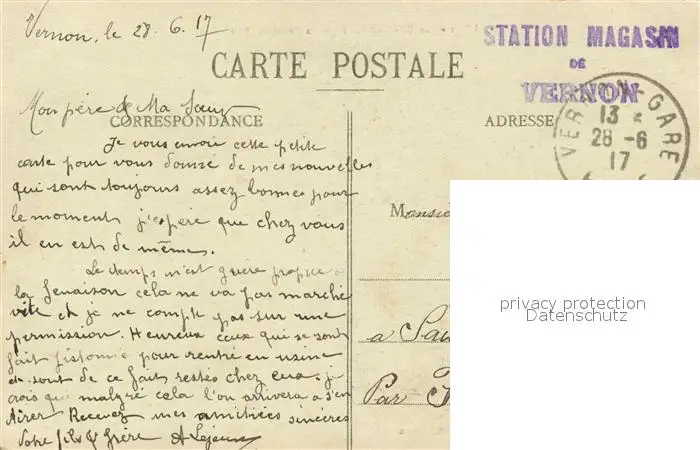 Vernon, le 28. 6. 17
STATION MAGASIN
DE
VERNON
CARTE POSTALE
VERNON-GARE
13
28 -6
17
Mon père & Ma Soeur
CORRESPONDANCE
ADRESSE
Je vous envoie cette petite
carte pour vous donner de mes nouvelles
qui sont toujours assez bonnes pour
le moment j'espère que chez vous
il en est de même.
Le temps n'est guère propice a
la fenaison cela ne va pas marché
vite et je ne compte pas sur une
permission. Heureux ceux qui se sont
fait pour rentré en usine
et sont de ce fait restés chez eux. je
crois que malgré cela l'on arrivera a s'en
tirer Recevez mes amitiées sincères
Votre fils & frère A Lejeune
Monsie
a
Par
privacy protection
Datenschutz